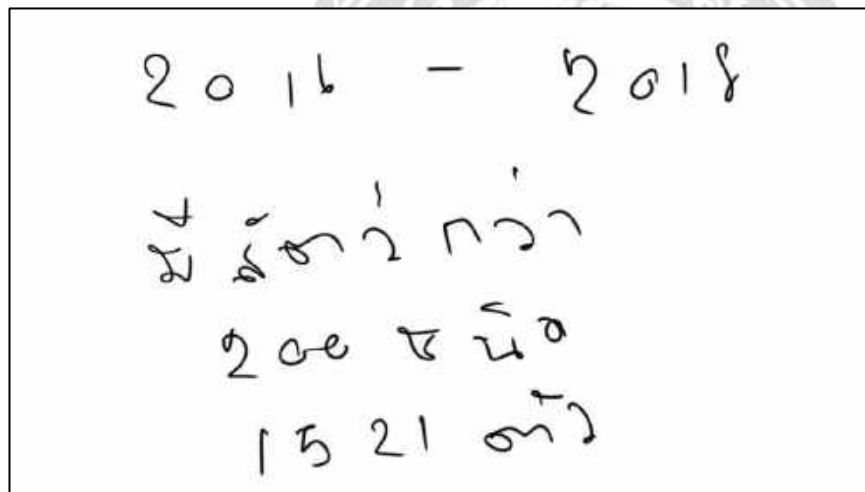 2016 - 2018
มีสัตว์กว่า
200 ชนิด
1521 ตัว